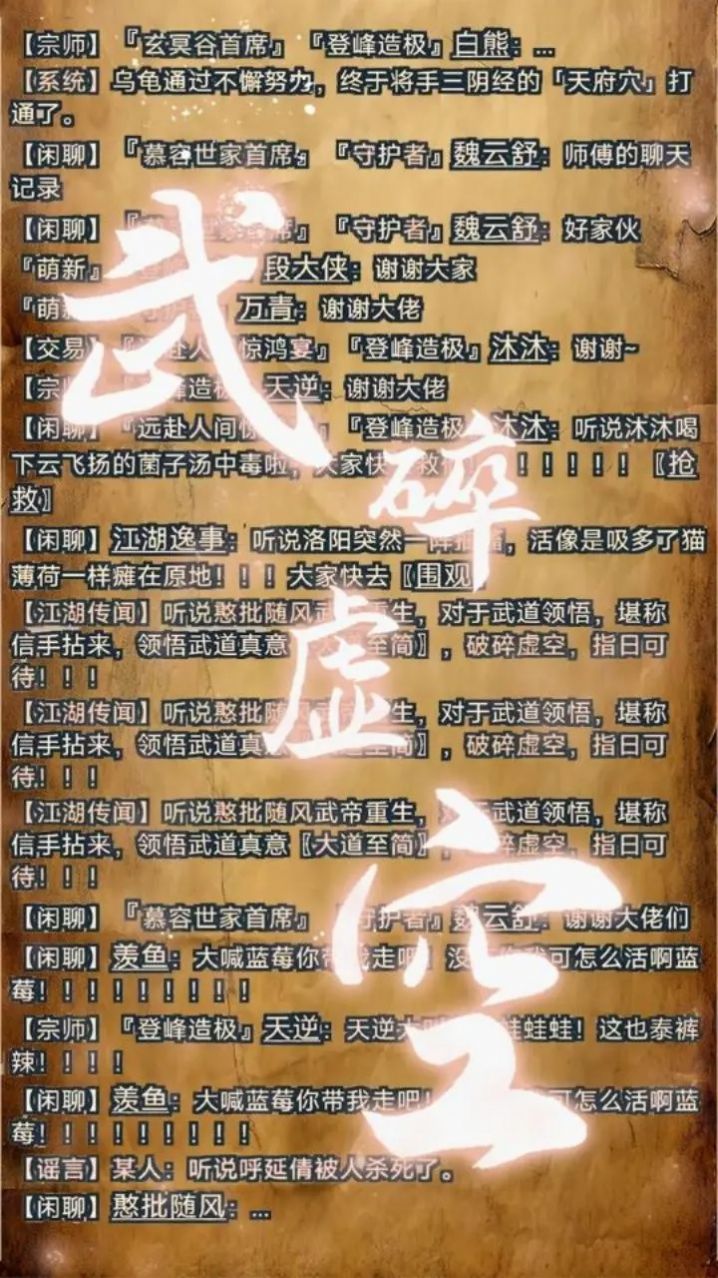 【宗师】『玄冥谷首席』『登峰造极』白熊：...
【系统】乌龟通过不懈努力，终于将手三阴经的「天府穴」打
通了。
【闲聊】『慕容世家首席』『守护者』魏云舒：师傅的聊天
记录
【闲聊】『 席』『守护者』魏云舒：好家伙
『萌新』 段大侠：谢谢大家
『萌新 万青：谢谢大佬
【交易】 赴人 惊鸿宴』『登峰造极』沐沐：谢谢~
【宗 峰造极 天逆：谢谢大佬
【闲 『远赴人间惊 』『登峰造极 沐沐：听说沐沐喝
下云飞扬的菌子汤中毒啦，大家快 救 ！！！！！〖抢
救〗
【闲聊】江湖逸事：听说洛阳突然一阵 ，活像是吸多了猫
薄荷一样瘫在原地！！！大家快去〖围观
【江湖传闻】听说憨批随风武 重生，对于武道领悟，堪称
信手拈来，领悟武道真意 大道至简〗，破碎虚空，指日可
待！！！
【江湖传闻】听说憨批随风武帝重生，对于武道领悟，堪称
信手拈来，领悟武道真意 大道至简〗，破碎虚空，指日可
待！！！
【江湖传闻】听说憨批随风武帝重生，对于武道领悟，堪称
信手拈来，领悟武道真意〖大道至简〗， 碎虚空，指日可
待！！！
【闲聊】『慕容世家首席』『守护者』魏云舒：谢谢大佬们
【闲聊】羡鱼：大喊蓝莓你带我走吧！没 可怎么活啊蓝
莓！！！！！！！！！
【宗师】『登峰造极』天逆：天逆大 蛙蛙蛙！这也泰裤
辣！！！！
【闲聊】羡鱼：大喊蓝莓你带我走吧！ 可怎么活啊蓝
莓！！！！！！！！！
【谣言】某人：听说呼延倩被人杀死了。
【闲聊】憨批随风：...
武
碎
虚
空